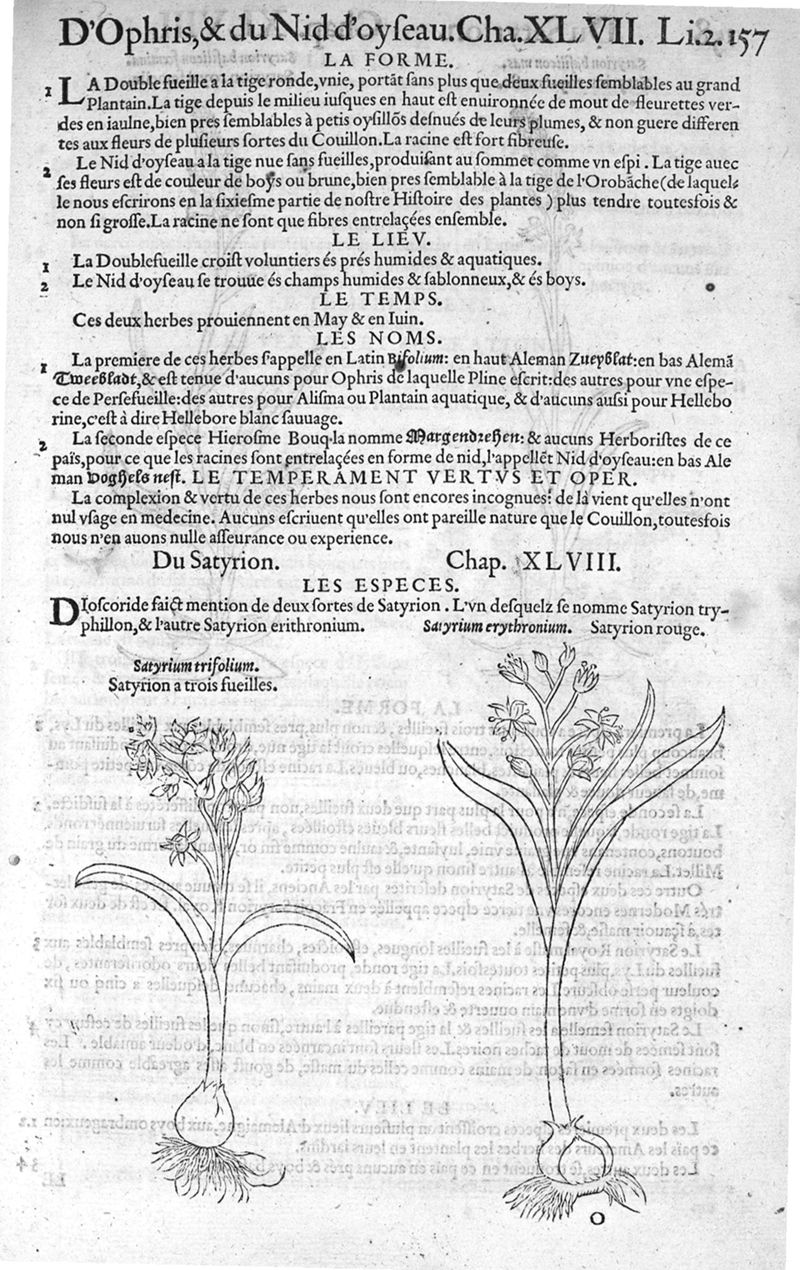 D'Ophris, & du Nid d'oyſeau. Cha. XLVII. Li.2. 157
LA FORME.
1 LA Double fueille a la tige ronde, vnie, portãt ſans plus que deux fueilles ſemblables au grand
Plantain. La tige depuis le milieu iuſques en haut eſt enuironnée de mout de fleurettes ver-
des en iaulne, bien pres ſemblables à petis oyſillõs deſnués de leurs plumes, & non guere differen
tes aux fleurs de pluſieurs ſortes du Couillon. La racine eſt fort fibreuſe.
2 Le Nid d'oyſeau a la tige nue ſans fueilles, produiſant au ſommet comme vn eſpi. La tige auec
ſes fleurs eſt de couleur de boys ou brune, bien pres ſemblable à la tige de l'Orobãche (de laquel-
le nous eſcrirons en la ſixieſme partie de noſtre Hiſtoire des plantes) plus tendre toutesfois &
non ſi groſſe. La racine ne ſont que fibres entrelaçées enſemble.
LE LIEV.
1 La Doublefueille croiſt voluntiers és prés humides & aquatiques.
2 Le Nid d'oyſeau ſe trouue és champs humides & ſablonneux, & és boys.
LE TEMPS.
Ces deux herbes prouiennent en May & en Iuin.
LES NOMS.
1 La premiere de ces herbes ſ'appelle en Latin Bifolium: en haut Aleman Zueyblat: en bas Alemã
Tweebladt, & eſt tenue d'aucuns pour Ophris de laquelle Pline eſcrit: des autres pour vne eſpe-
ce de Perſefueille: des autres pour Aliſma ou Plantain aquatique, & d'aucuns auſſi pour Hellebo
rine, c'eſt à dire Hellebore blanc ſauuage.
2 La ſeconde eſpece Hieroſme Bouq. la nomme Margendrehen: & aucuns Herboriſtes de ce
païs, pour ce que les racines ſont entrelaçées en forme de nid, l'appellẽt Nid d'oyſeau: en bas Ale
man Voghels neſt. LE TEMPERAMENT VERTVS ET OPER.
La complexion & vertu de ces herbes nous ſont encores incognues: de là vient qu'elles n'ont
nul vſage en medecine. Aucuns eſcriuent qu'elles ont pareille nature que le Couillon, toutesfois
nous n'en auons nulle aſſeurance ou experience.
Du Satyrion. Chap. XLVIII.
LES ESPECES.
DIoſcoride faict mention de deux ſortes de Satyrion. L'vn deſquelz ſe nomme Satyrion try-
phillon, & l'autre Satyrion erithronium. Satyrium erythronium. Satyrion rouge.
Satyrium trifolium.
Satyrion a trois fueilles.
O